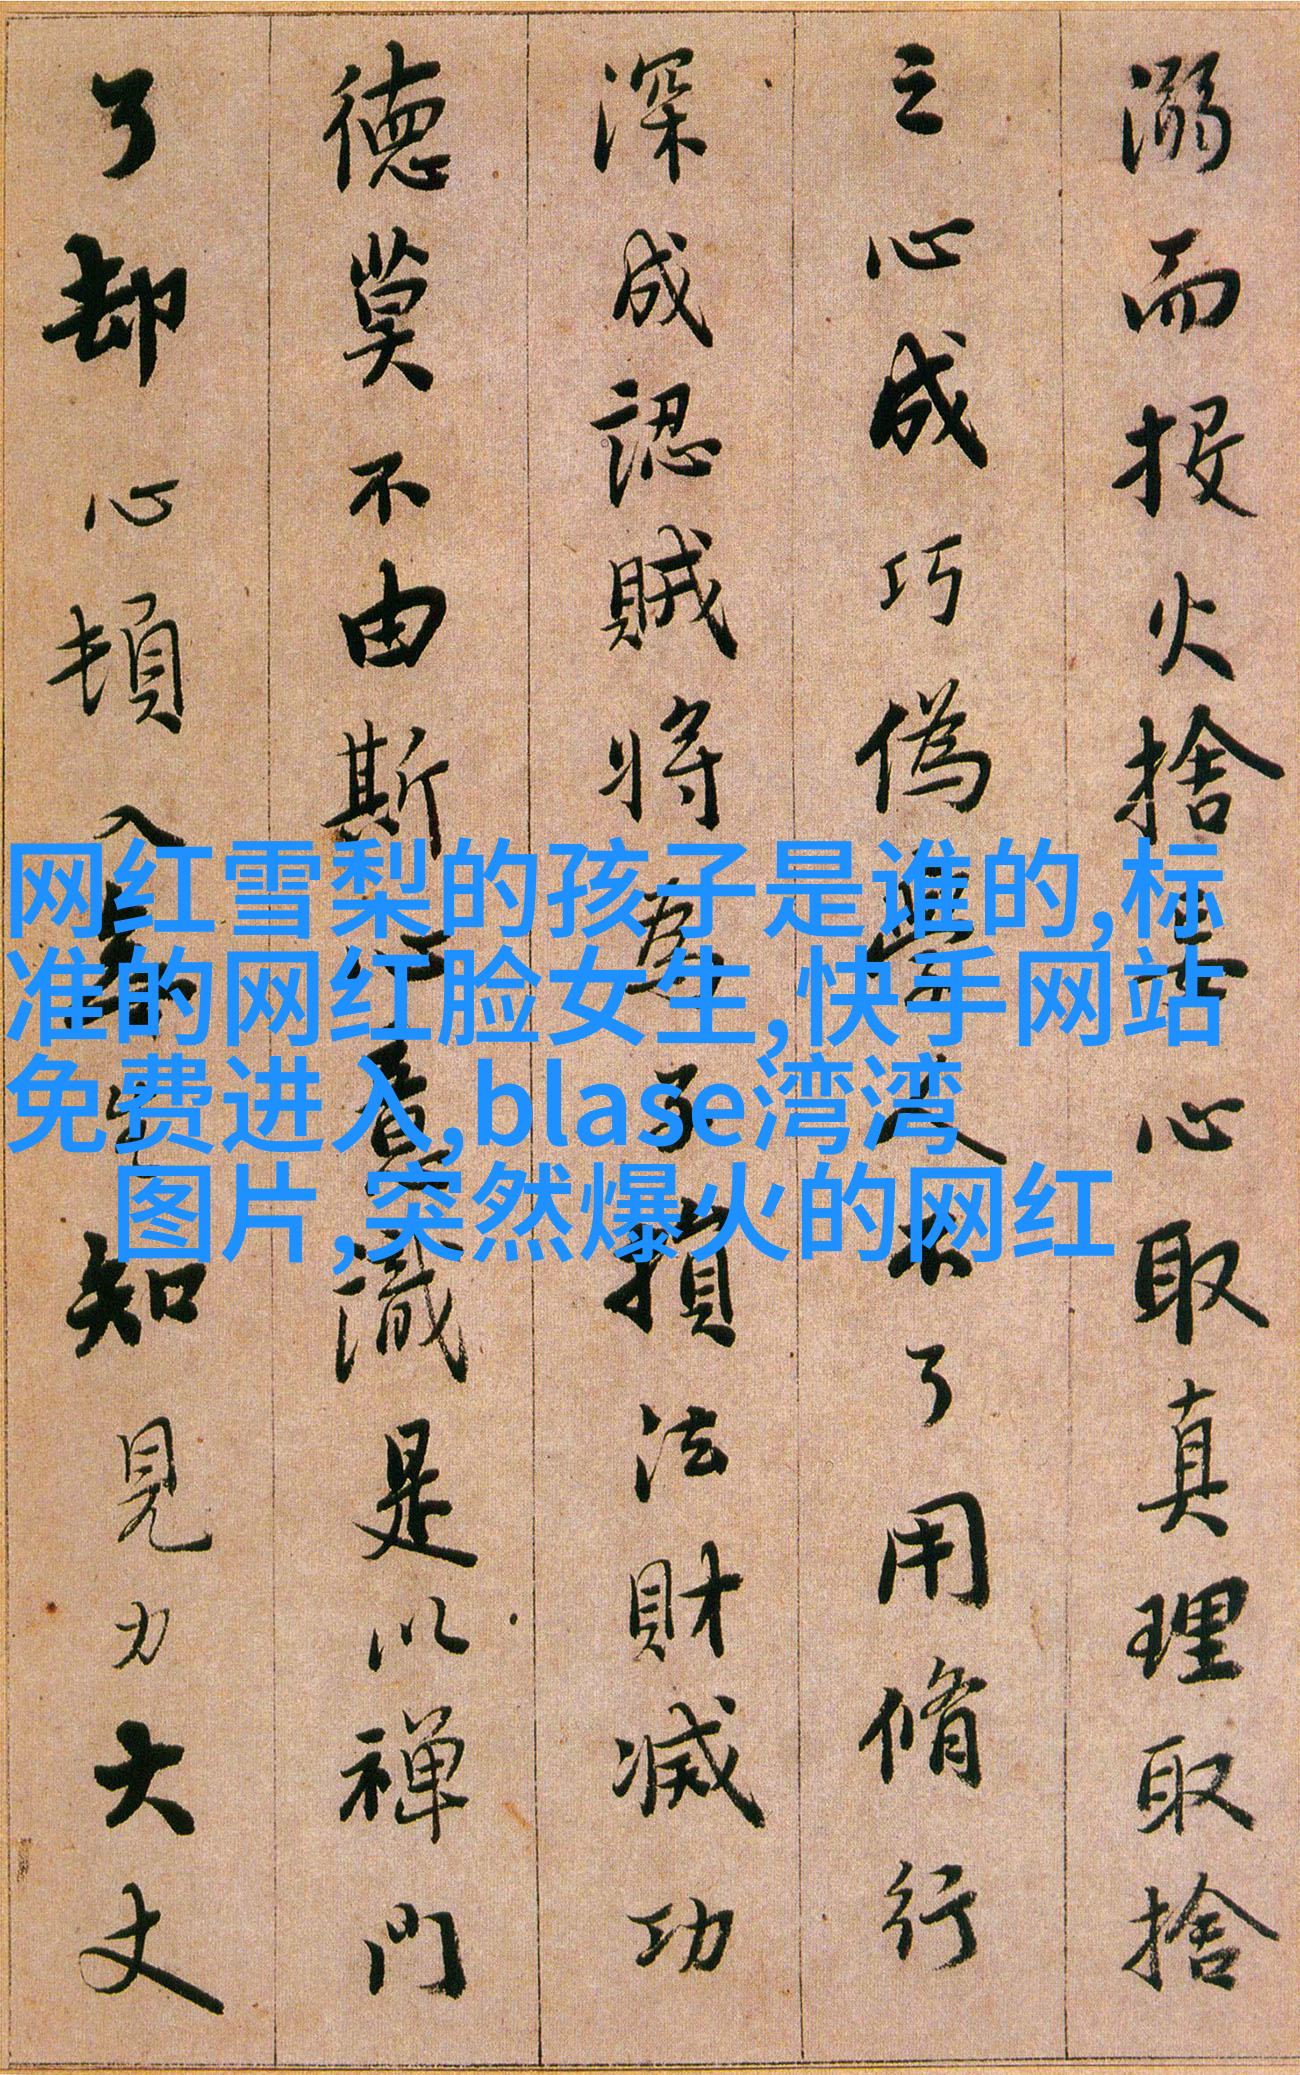 溺而投火捨妄心取真理取捨
之心成巧偽學人不了用脩行
深成認賊將為子損法財滅功
德莫不由斯心意識是以禪門
了却心頓入無生知見力大丈
网红雪梨的孩子是谁的,标
准的网红脸女生,快手网站
免费进入,blase湾湾
图片,突然爆火的网红